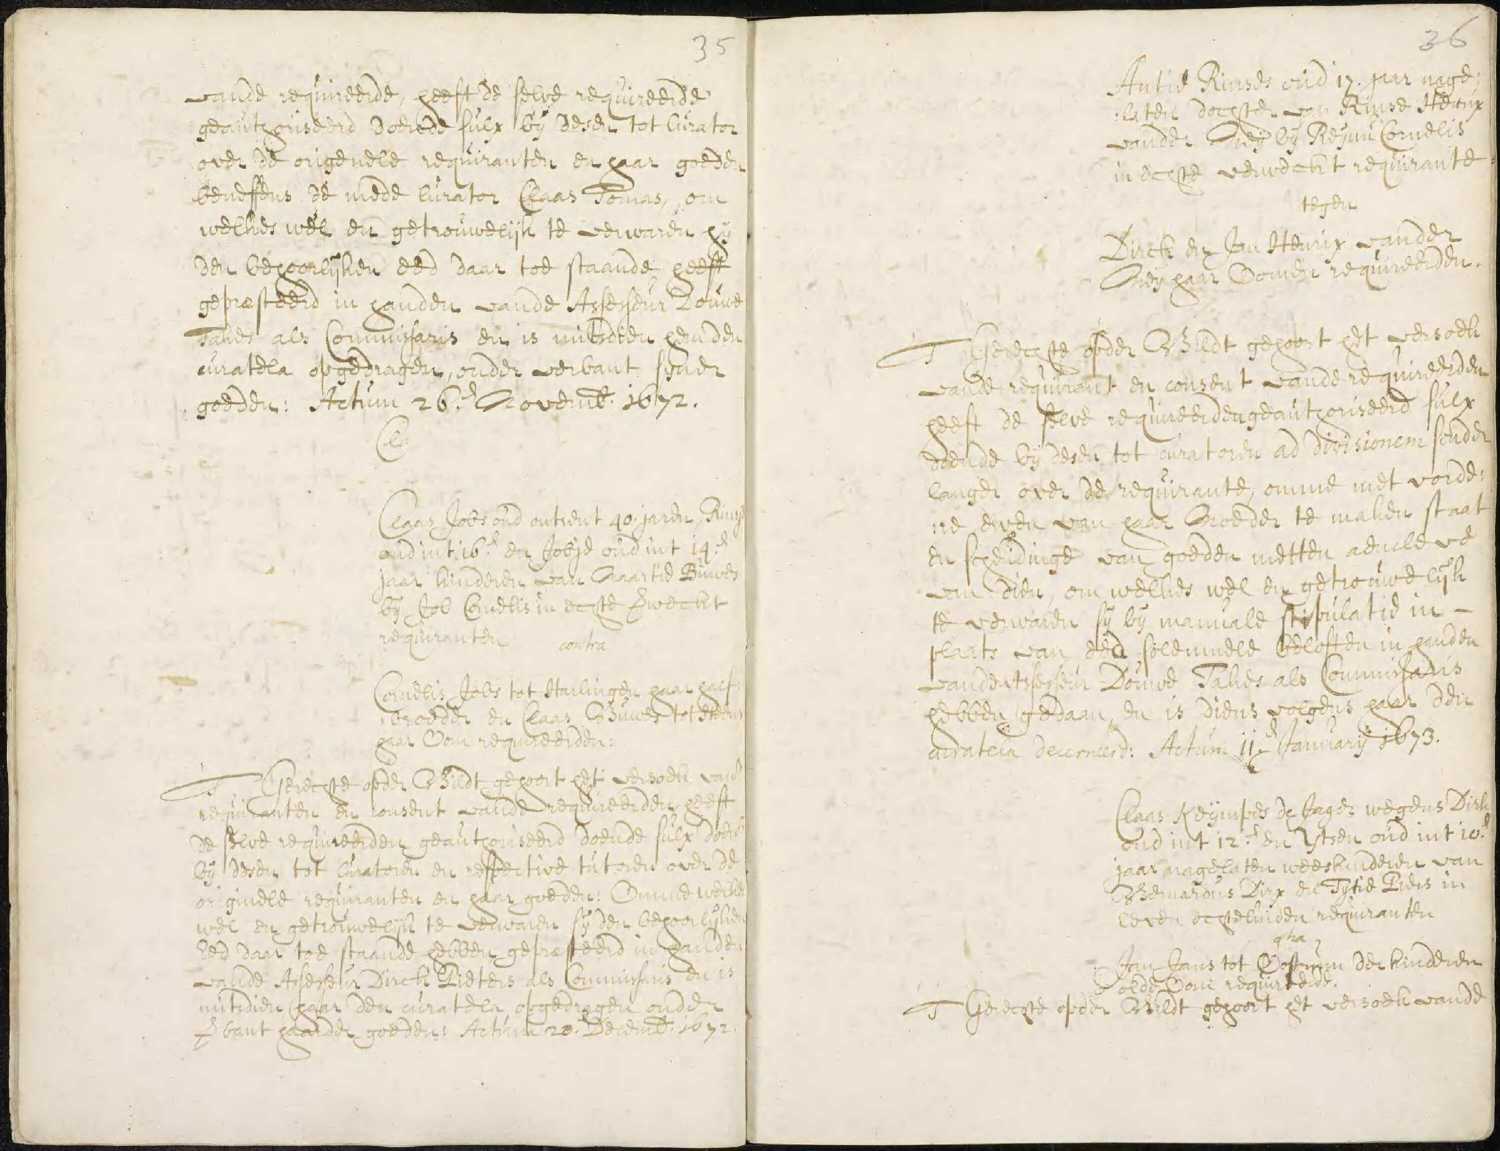 35
vande requireerde, heeft de selve requireerde
geauthoriseerd doende sulx bij desen tot Curator
over de origenele requiranten en haar goeden
beneffens de mede Curator Claas Tomas, om
welkes wel en getrouwelijk te verwaren hij
den behoorlijken eed daar toe staande heeft
gepresteerd in handen vande Assesseur Douwe
Takes als Commissaris en is mitsdien hem den
curatela opgedragen, onder verbant sijner
goeden: Actum 26.e Novemb. 1672.
Cla
Claas Jobs oud ontrent 40 jaren,
oud int 16.e en Jobje oud int 14.e
jaar kinderen van Maartie
bij Job Cornelis in echte verwect
requiranten
contra
Cornelis Jobs tot Harlingen haar half
broeder en Claas tot
haar Oom requireerden:
T Gerechte opden Bildt gehoort het versoek vande
requiranten en consent vande requireerden heeft
de selve requireerden geauthoriseerd doende sulx
bij desen tot Curatoren en respective tutoren over de
originele requiranten en haar goeden: Omme welke
wel en getrouwelijk te verwaren sij den behoorlijken
Eed daar toe staande hebben gepresteerd in handen
vande Assesseur Dirck Pieters als Commissaris en is
mitsdien haar den curatela opgedragen onder
verbant haarder goeden: Actum 20. Decemb. 1672.
36
Antie Rinses oud 17. jaar nage-
laten dochter van Rinse Henrix
vander Meij bij Cornelis
in echte verweckt requirante
tegen
Dirck en Jan Henrix vander
Meij haar Oomen requireerden.
T Gerechte opden Bildt gehoort het versoek
vande requirant en consent vande requireerden
heeft de selve requireerden geauthoriseerd sulx
doende bij desen tot curatoren ad divisionem sonder
langer over de requirante, omme met
van haar Moeder te maken staat
en scheidinge van goeden metten aencleve
van dien, om welkes wel en getrouwelijk
te verwaren sij bij manuale stipulatie in
plaats van eed solemnele beloften in handen
vanden Assesseur Douwe Takes als Commissaris
hebben gedaan, en is diens volgens haar den
curatela decerneerd: Actum 11.e January 1673.
Claas Keijmpes de Jager wegens Dirk
oud int 12.e en Ytsen oud int 10.e
jaar nagelaten weeskinderen van
Bernardus Dirx en Tytie Piers in
leven echtelieden requiranten
contra
Jan Jans tot der kinderen
olde Oom requireerde.
T Gerechte opden Bildt gehoort het versoek vande